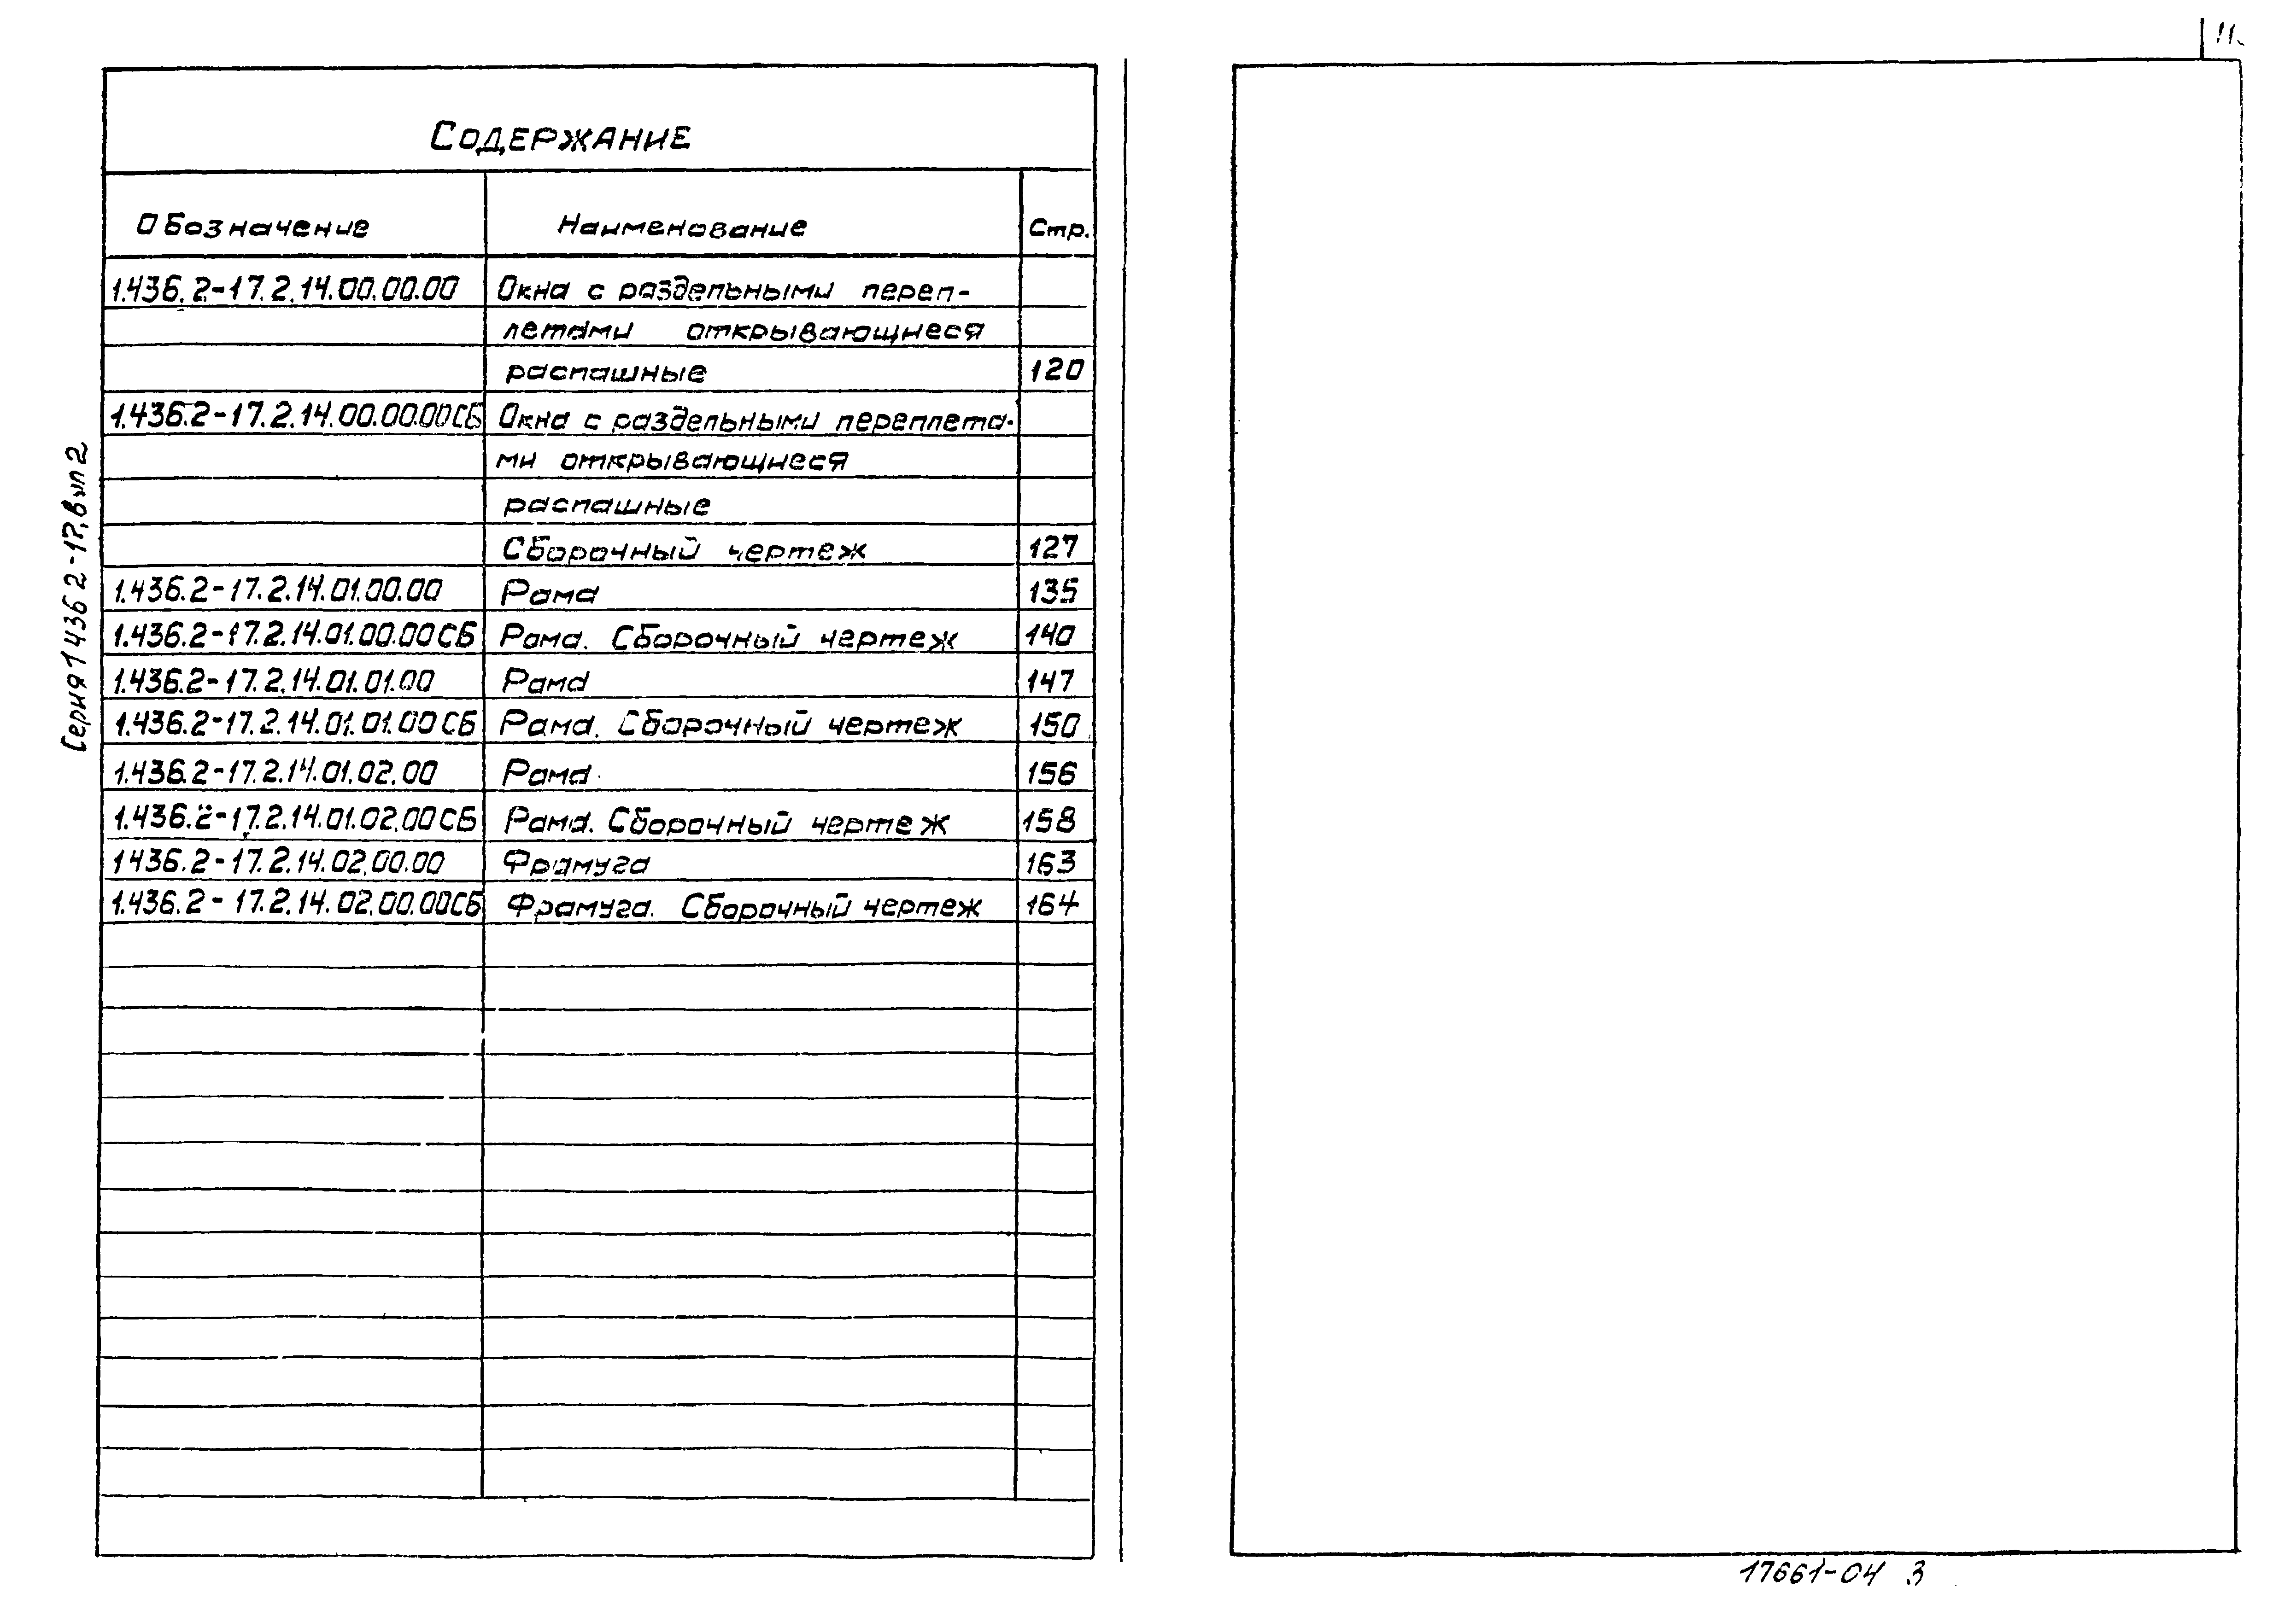 11.
СОДЕРЖАНИЕ
Обозначение Наименование Стр.
1.436.2-17.2.14.00.00.00 Окна с раздельными переп-
летами открывающиеся
распашные 120
1.436.2-17.2.14.00.00.00СБ Окна с раздельными переплета-
ми открывающиеся
распашные
Сборочный чертеж 127
1.436.2-17.2.14.01.00.00 Рама 135
1.436.2-17.2.14.01.00.00СБ Рама. Сборочный чертеж 140
1.436.2-17.2.14.01.01.00 Рама 147
1.436.2-17.2.14.01.01.00СБ Рама. Сборочный чертеж 150
1.436.2-17.2.14.01.02.00 Рама 156
1.436.2-17.2.14.01.02.00СБ Рама. Сборочный чертеж 158
1436.2-17.2.14.02.00.00 Фрамуга 163
1.436.2-17.2.14.02.00.00СБ Фрамуга. Сборочный чертеж 164
Серия 1 436 2-17, вып 2
17661-04 3